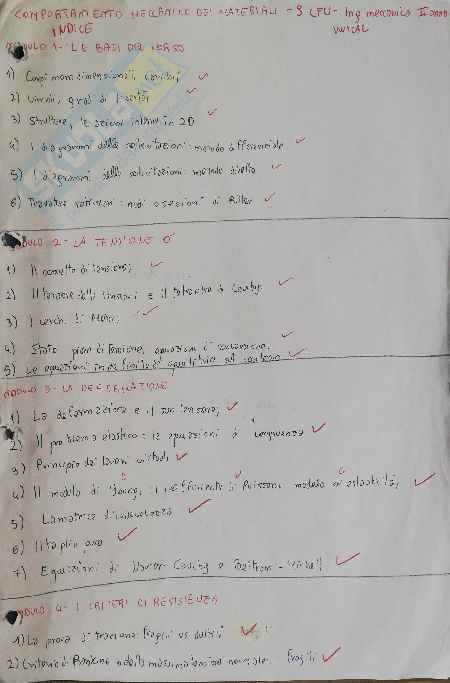 COMPORTAMENTO MECCANICO DEI MATERIALI - 9 CFU - Ing meccanica II anno
INDICE UNICAL
MODULO 1 - LE BASI DEL CORSO
1) Corpi monodimensionali, continui
2) Vincoli, gradi di libertà
3) Strutture, le azioni interne in 2D
4) I diagrammi delle sollecitazioni: metodo differenziale
5) I diagrammi delle sollecitazioni: metodo diretto
6) Travature reticolari: nodi e sezioni di Ritter
MODULO 2 - LA TENSIONE σ
1) Il concetto di tensione;
2) Il tensore degli sforzi e il tetraedro di Cauchy
3) I cerchi di Mohr;
4) Stato piano di tensione, equazioni di
5) Le equazioni indefinite di equilibrio al contorno
MODULO 3 - LA DEFORMAZIONE
1) La deformazione e il suo tensore;
2) Il problema elastico: le equazioni di congruenza
3) Principio dei lavori virtuali
4) Il modulo di Young, il coefficiente di Poisson, modulo di elasticità;
5) La matrice di
6)
7) Equazioni di Navier-Cauchy e Beltrami-Mitchell
MODULO 4 - I CRITERI DI RESISTENZA
1) La prova di trazione: fragili vs duttili
2) Criterio di Rankine o della massima tensione normale. Fragili